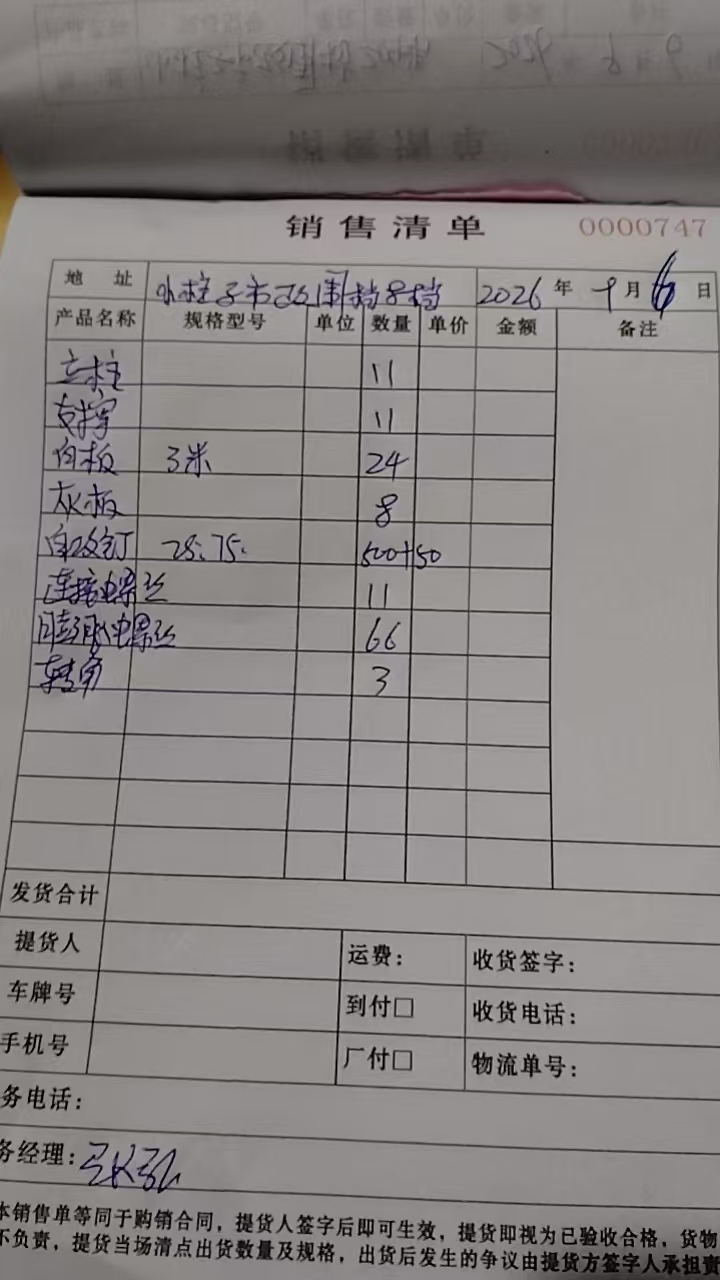 销售清单 0000747
地 址 小柱子市政围挡8档 2026 年 9 月 6 日
产品名称 规格型号 单位 数量 单价 金额 备注
立柱 11
支撑 11
白板 3米 24
灰板 8
自攻钉 25.75. 500+50
连接螺丝 11
膨胀螺丝 66
转角 3
发货合计
提货人 运费： 收货签字：
车牌号 到付□ 收货电话：
手机号 厂付□ 物流单号：
务电话：
务经理：
本销售单等同于购销合同，提货人签字后即可生效，提货即视为已验收合格，货物
不负责，提货当场清点出货数量及规格，出货后发生的争议由提货方签字人承担责